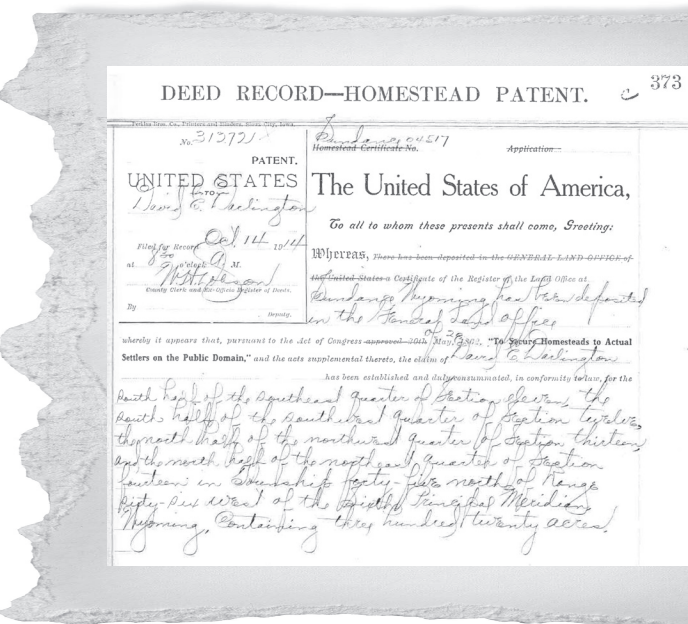 DEED RECORD—HOMESTEAD PATENT.
373
Perkins Bros. Co., Printers and Binders, Sioux City, Iowa.
No. 313721
PATENT.
UNITED STATES
TO
David C. Darlington
Filed for Record Oct. 14 1914
at 8 30 o'clock A M.
County Clerk and Ex-Officio Register of Deeds.
By Deputy.
Sundance 04517
Homestead Certificate No. Application
The United States of America,
To all to whom these presents shall come, Greeting:
Whereas, There has been deposited in the GENERAL LAND OFFICE of
the United States a Certificate of the Register of the Land Office at
Sundance Wyoming has been deposited
in the General Land Office
whereby it appears that, pursuant to the Act of Congress approved 20th of 20 May, 1862, "To Secure Homesteads to Actual
Settlers on the Public Domain," and the acts supplemental thereto, the claim of David C. Darlington
has been established and duly consummated, in conformity to law, for the
south half of the southeast quarter of Section eleven, the
south half of the southwest quarter of Section twelve,
the north half of the northwest quarter of Section thirteen,
and the north half of the northeast quarter of Section
fourteen in Township forty-five north of Range
fifty-six west of the Sixth Principal Meridian,
Wyoming, containing three hundred twenty acres.